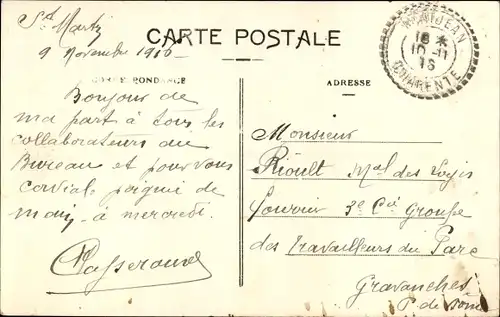 St Martz
9 Novembre 1916
CARTE POSTALE
CORRESPONDANCE
ADRESSE
MONTJEAN
10 - 11
16
CHARENTE
Bonjour de
ma part à tous les
collaborateurs du
Bureau et pour vous
cordial poignée de
main à mercredi.
Monsieur
Rioult Mal des Logis
3e Cie Groupe
des Travailleurs du Parc
Gravanches
P. de Dôme